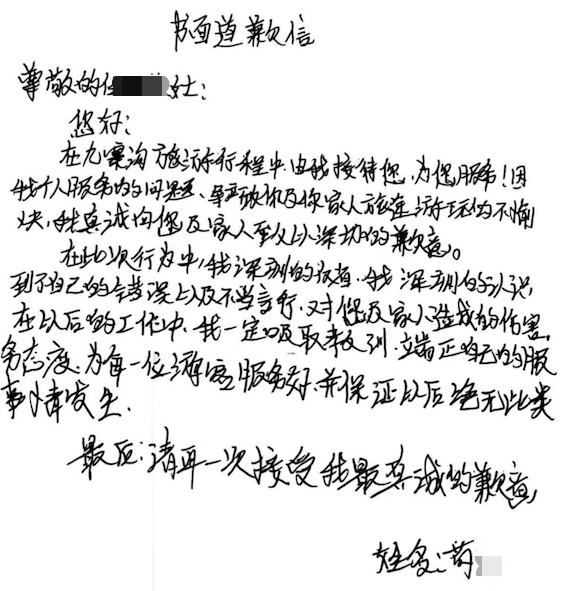 书面道歉信
尊敬的 女士:
您好:
在九寨沟旅游行程中由我接待您,为您服务!因
我个人服务的问题,导致你及你家人旅途游玩的不愉
快,我真诚向您及家人至以深切的歉意。
在此次行为中,我深刻的 我深刻的认识
到了自己的错误以及不当言行,对您及家人造成的伤害,
在以后的工作中,我一定吸取教训,端正自己的服
务态度,为每一位游客服务好,并保证以后绝无此类
事情发生.
最后:请再一次接受我最真诚的歉意,
姓名: